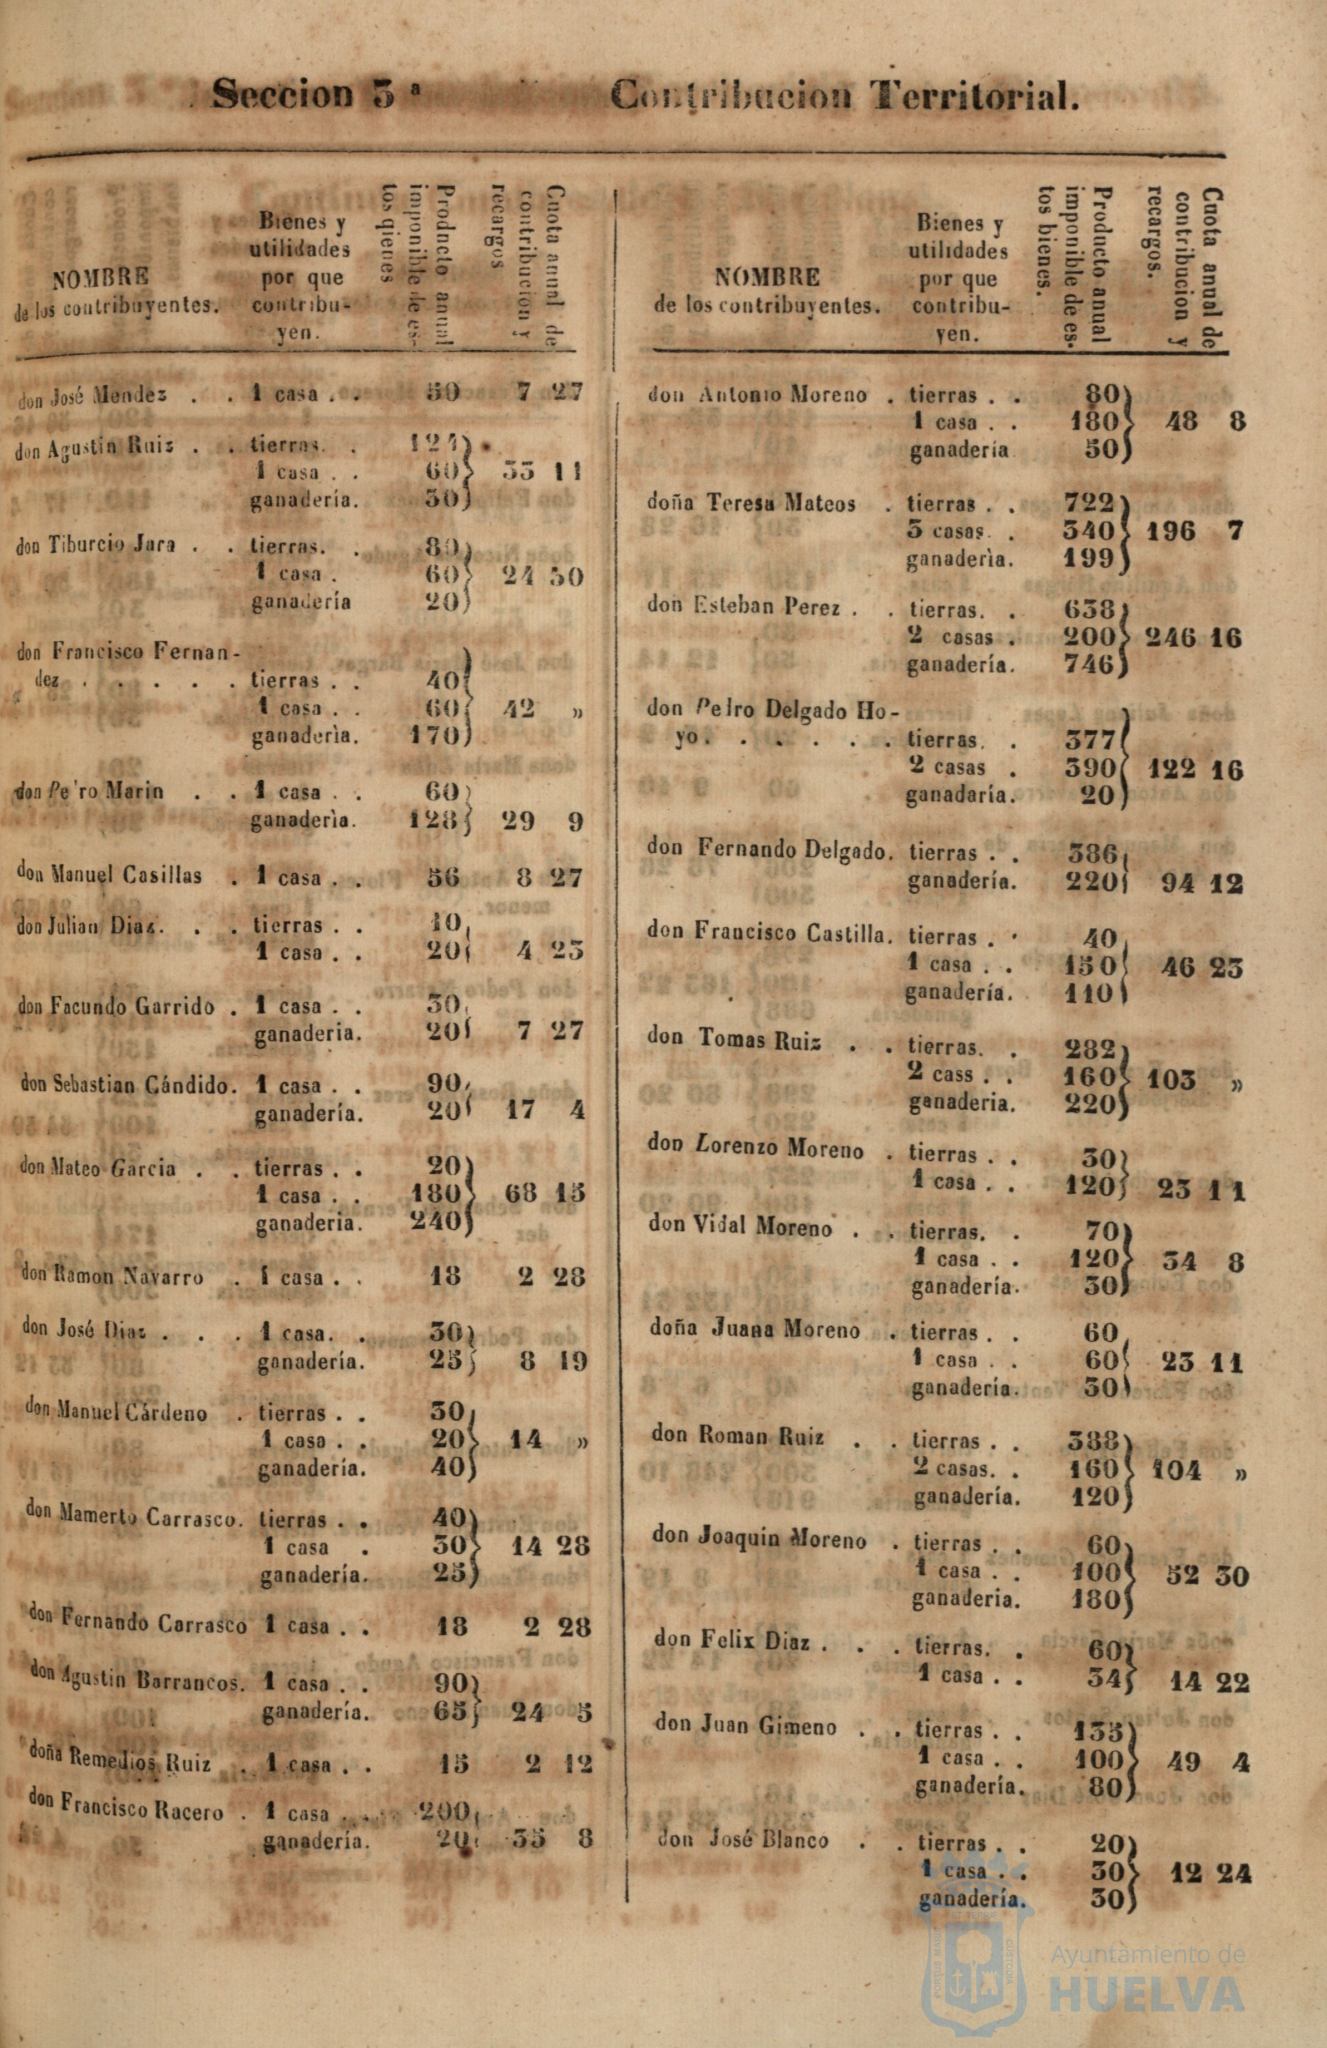 Seccion 3ª Contribucion Territorial.
NOMBRE
de los contribuyentes.
Bienes y
utilidades
por que
contribu-
yen.
Producto anual
imponible de es-
tos bienes
Cuota anual de
contribucion y
recargos
don José Mendez . . 1 casa . . 50 7 27
don Agustin Ruiz . . tierras. . 124
1 casa . . 60 33 11
ganadería. 30
don Tiburcio Jara . . tierras. . 80
1 casa . 60 24 30
ganadería 20
don Francisco Fernan-
dez . . . . . tierras . . 40
1 casa . . 60 42 »
ganaderìa. 170
don Pe'ro Marin . . 1 casa . . 60
ganaderìa. 128 29 9
don Manuel Casillas . 1 casa . . 56 8 27
don Julian Diaz. . . tierras . . 10
1 casa . . 20 4 23
don Facundo Garrido . 1 casa . . 30
ganaderia. 20 7 27
don Sebastian Cándido. 1 casa . . 90
ganadería. 20 17 4
don Mateo Garcia . . tierras . . 20
1 casa . . 180 68 15
ganaderia. 240
don Ramon Navarro . 1 casa . . 18 2 28
don José Diaz . . . 1 casa. . 30
ganadería. 25 8 19
don Manuel Cárdeno . tierras . . 30
1 casa . . 20 14 »
ganadería. 40
don Mamerto Carrasco. tierras . . 40
1 casa . 30 14 28
ganadería. 25
don Fernando Carrasco 1 casa . . 18 2 28
don Agustin Barrancos. 1 casa . . 90
ganadería. 65 24 5
doña Remedios Ruiz . 1 casa . . 15 2 12
don Francisco Racero . 1 casa . . 200
ganadería. 20 35 8
NOMBRE
de los contribuyentes.
Bienes y
utilidades
por que
contribu-
yen.
Producto anual
imponible de es-
tos bienes.
Cuota anual de
contribucion y
recargos.
don Antonio Moreno . tierras . . 80
1 casa . . 180 48 8
ganadería 50
doña Teresa Mateos . tierras . . 722
3 casas. . 340 196 7
ganaderìa. 199
don Esteban Perez . . tierras. . 638
2 casas . 200 246 16
ganadería. 746
don Pedro Delgado Ho-
yo. . . . . . tierras. . 377
2 casas . 390 122 16
ganadaría. 20
don Fernando Delgado. tierras . . 386
ganadería. 220 94 12
don Francisco Castilla. tierras . . 40
1 casa . . 150 46 23
ganadería. 110
don Tomas Ruiz . . tierras. . 282
2 cass . . 160 103 »
ganaderia. 220
don Lorenzo Moreno . tierras . . 30
1 casa . . 120 23 11
don Vidal Moreno . . tierras. . 70
1 casa . . 120 34 8
ganadería. 30
doña Juana Moreno . tierras . . 60
1 casa . . 60 23 11
ganadería. 30
don Roman Ruiz . . tierras . . 388
2 casas. . 160 104 »
ganadería. 120
don Joaquin Moreno . tierras . . 60
1 casa . . 100 52 30
ganaderia. 180
don Felix Diaz . . . tierras. . 60
1 casa . . 34 14 22
don Juan Gimeno . . tierras . . 135
1 casa . . 100 49 4
ganadería. 80
don José Blanco . . tierras . . 20
1 casa . . 30 12 24
ganadería. 30
Ayuntamiento de
HUELVA